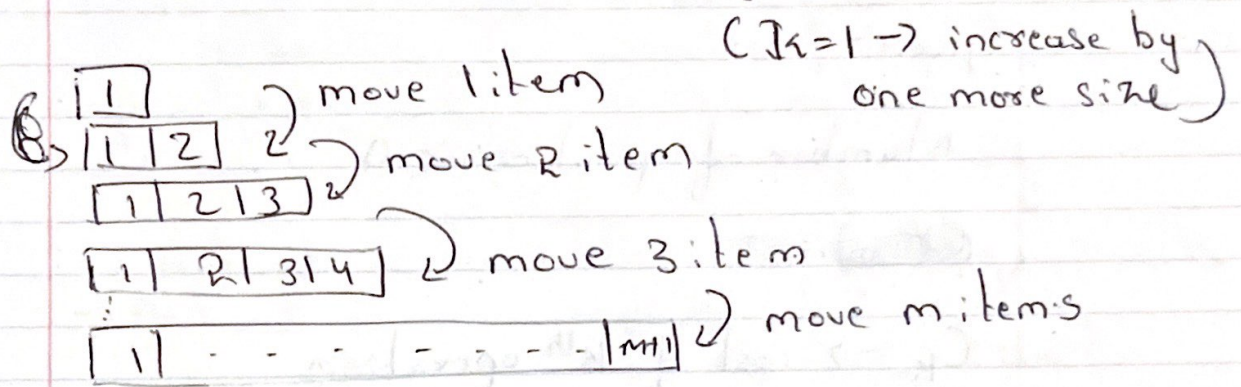 (K=1 → increase by
one more size)
1
move 1 item
1 2
move 2 item
1 2 3
1 2 3 4
move 3 item
move m items
1 - - - - - - - m+1